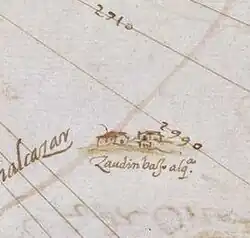 2910
2990
nalcazar
Zaudin baxo alq.ª